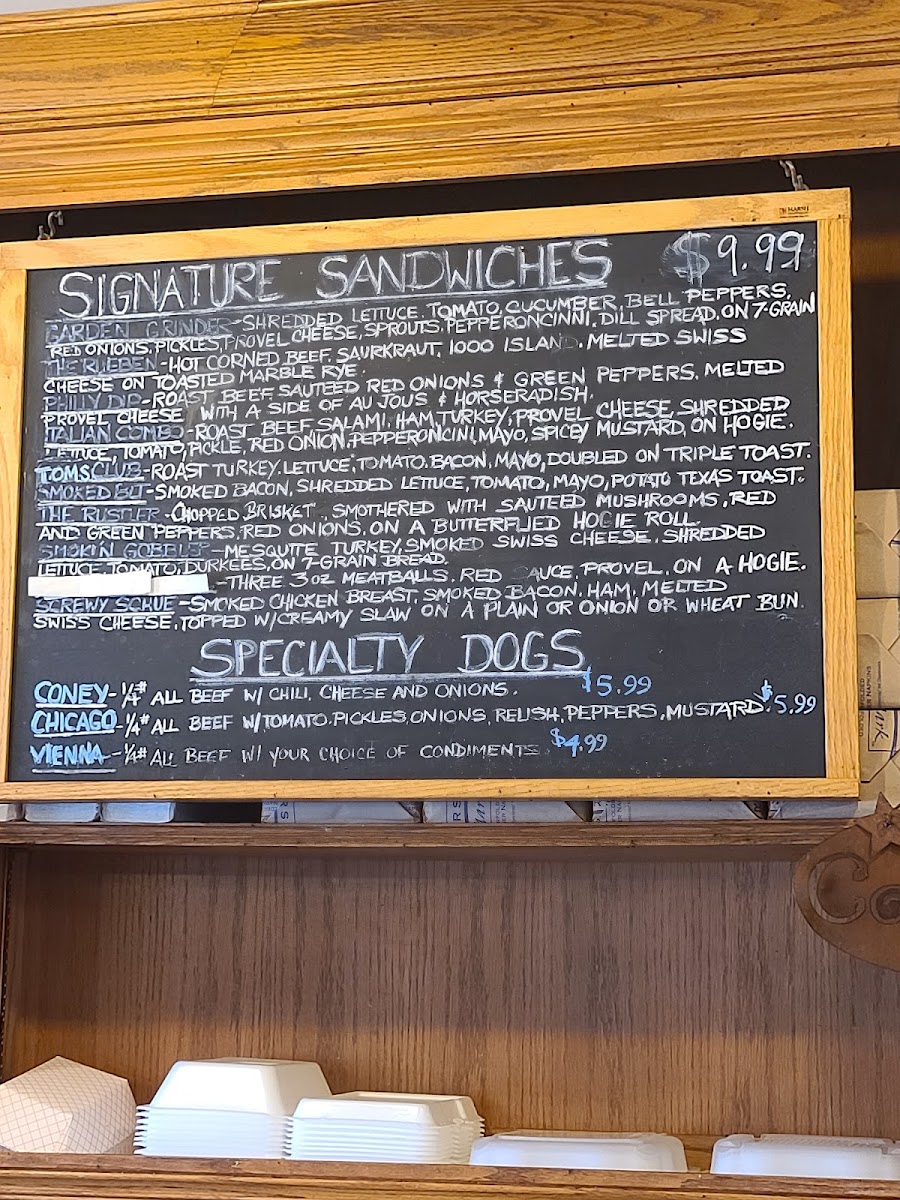 SIGNATURE SANDWICHES $9.99
GARDEN GRINDER-SHREDDED LETTUCE. TOMATO, CUCUMBER, BELL PEPPERS,
RED ONIONS, PICKLES, PROVEL CHEESE, SPROUTS. PEPPERONCINNI. DILL SPREAD, ON 7-GRAIN
THE RUEBEN-HOT CORNED BEEF. SAURKRAUT. 1000 ISLAND. MELTED SWISS
CHEESE ON TOASTED MARBLE RYE.
PHILLY DIP-ROAST BEEF. SAUTEED RED ONIONS & GREEN PEPPERS. MELTED
PROVEL CHEESE WITH A SIDE OF AU JOUS & HORSERADISH.
ITALIAN COMBO-ROAST BEEF SALAMI. HAM, TURKEY, PROVEL CHEESE, SHREDDED
LETTUCE, TOMATO, PICKLE, RED ONION, PEPPERONCINI, MAYO, SPICEY MUSTARD, ON HOGIE.
TOMS CLUB-ROAST TURKEY. LETTUCE, TOMATO. BACON. MAYO, DOUBLED ON TRIPLE TOAST.
SMOKED BLT-SMOKED BACON, SHREDDED LETTUCE, TOMATO, MAYO, POTATO TEXAS TOAST.
THE RUSTLER-CHOPPED BRISKET, SMOTHERED WITH SAUTEED MUSHROOMS, RED
AND GREEN PEPPERS, RED ONIONS, ON A BUTTERFLIED HOGIE ROLL.
SMOKIN GOBBLER-MESQUITE TURKEY, SMOKED SWISS CHEESE, SHREDDED
LETTUCE, TOMATO, DURKEES, ON 7-GRAIN BREAD.
-THREE 3 OZ MEATBALLS. RED SAUCE, PROVEL, ON A HOGIE.
SCREWY SCRUE-SMOKED CHICKEN BREAST, SMOKED BACON, HAM, MELTED
SWISS CHEESE, TOPPED W/CREAMY SLAW ON A PLAIN OR ONION OR WHEAT BUN.
SPECIALTY DOGS
CONEY-1/4# ALL BEEF W/ CHILI, CHEESE AND ONIONS. $5.99
CHICAGO-1/4# ALL BEEF W/TOMATO. PICKLES, ONIONS, RELISH, PEPPERS, MUSTARD. $5.99
VIENNA-1/4# ALL BEEF W/ YOUR CHOICE OF CONDIMENTS $4.99